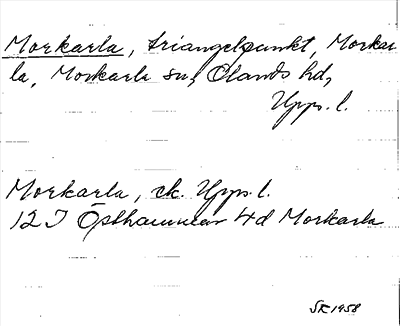 Morkarla, triangelpunkt, Morkar
la, Morkarla sn, Olands hd,
Upps. l.
Morkarla, ek. Upps. l.
12 I Östhammar 4d Morkarla
SK 1958